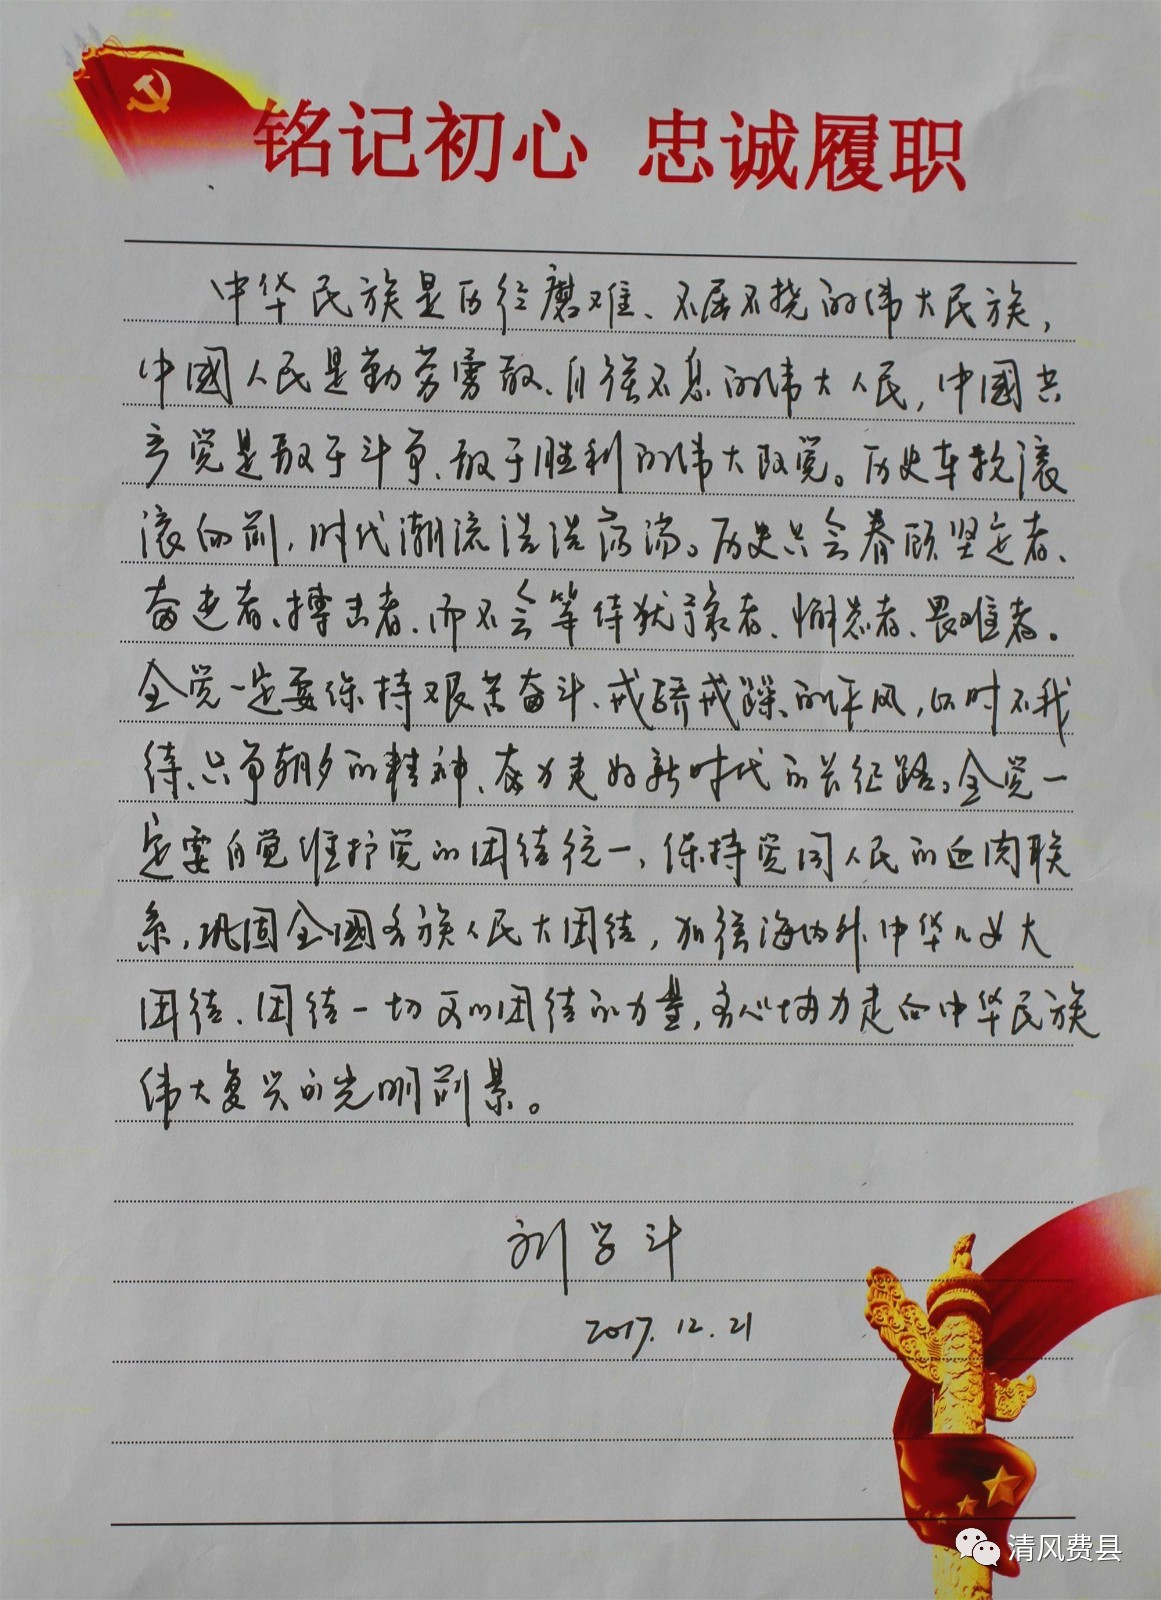 铭记初心 忠诚履职
中华民族是历经磨难、不屈不挠的伟大民族，
中國人民是勤劳勇敢、自强不息的伟大人民，中國共
产党是敢于斗争、敢于胜利的伟大政党。历史车轮滚
滚向前，时代潮流浩浩荡荡。历史只会眷顾坚定者、
奋进者、搏击者，而不会等待犹豫者、懈怠者、畏难者。
全党一定要保持艰苦奋斗、戒骄戒躁的作风，以时不我
待、只争朝夕的精神，奋力走好新时代的长征路。全党一
定要自觉维护党的团结统一，保持党同人民的血肉联
系，巩固全國各族人民大团结，加强海内外中华儿女大
团结，团结一切可以团结的力量，齐心协力走向中华民族
伟大复兴的光明前景。
刘学斗
2017.12.21
清风费县